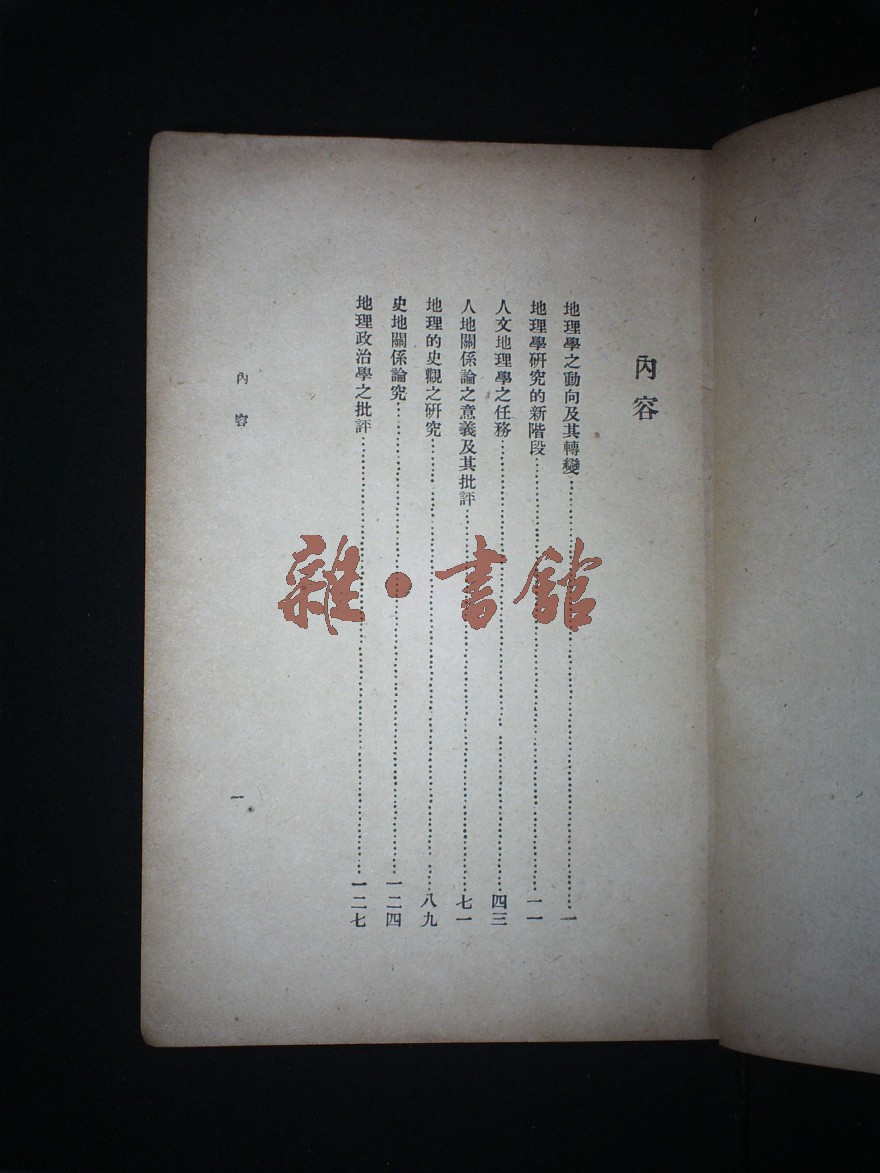 內容
地理學之動向及其轉變……一
地理學研究的新階段……一一
人文地理學之任務……四三
人地關係論之意義及其批評……七一
地理的史觀之研究……八九
史地關係論究……一二四
地理政治學之批評……一二七
內容
一
雜•書館